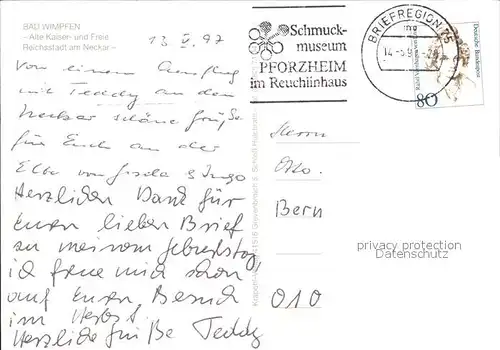 BAD WIMPFEN
– Alte Kaiser- und Freie
Reichsstadt am Neckar –
13 V. 97
Von einem Ausflug
mit Teddy an den
Neckar schöne Grüße
für Euch an der
Elbe von Gisela & Ingo
Herzlichen Dank für
Euren lieben Brief
zu meinem Geburtstag,
ich freue mich schon
auf Euren Besuch
im Herbst.
Herzliche Grüße Teddy
Schmuck-
museum
PFORZHEIM
im Reuchlinhaus
BRIEFREGION 75
14.-5.9
Deutsche Bundespost
80
Herrn
Otto
Bern
010
privacy protection
Datenschutz